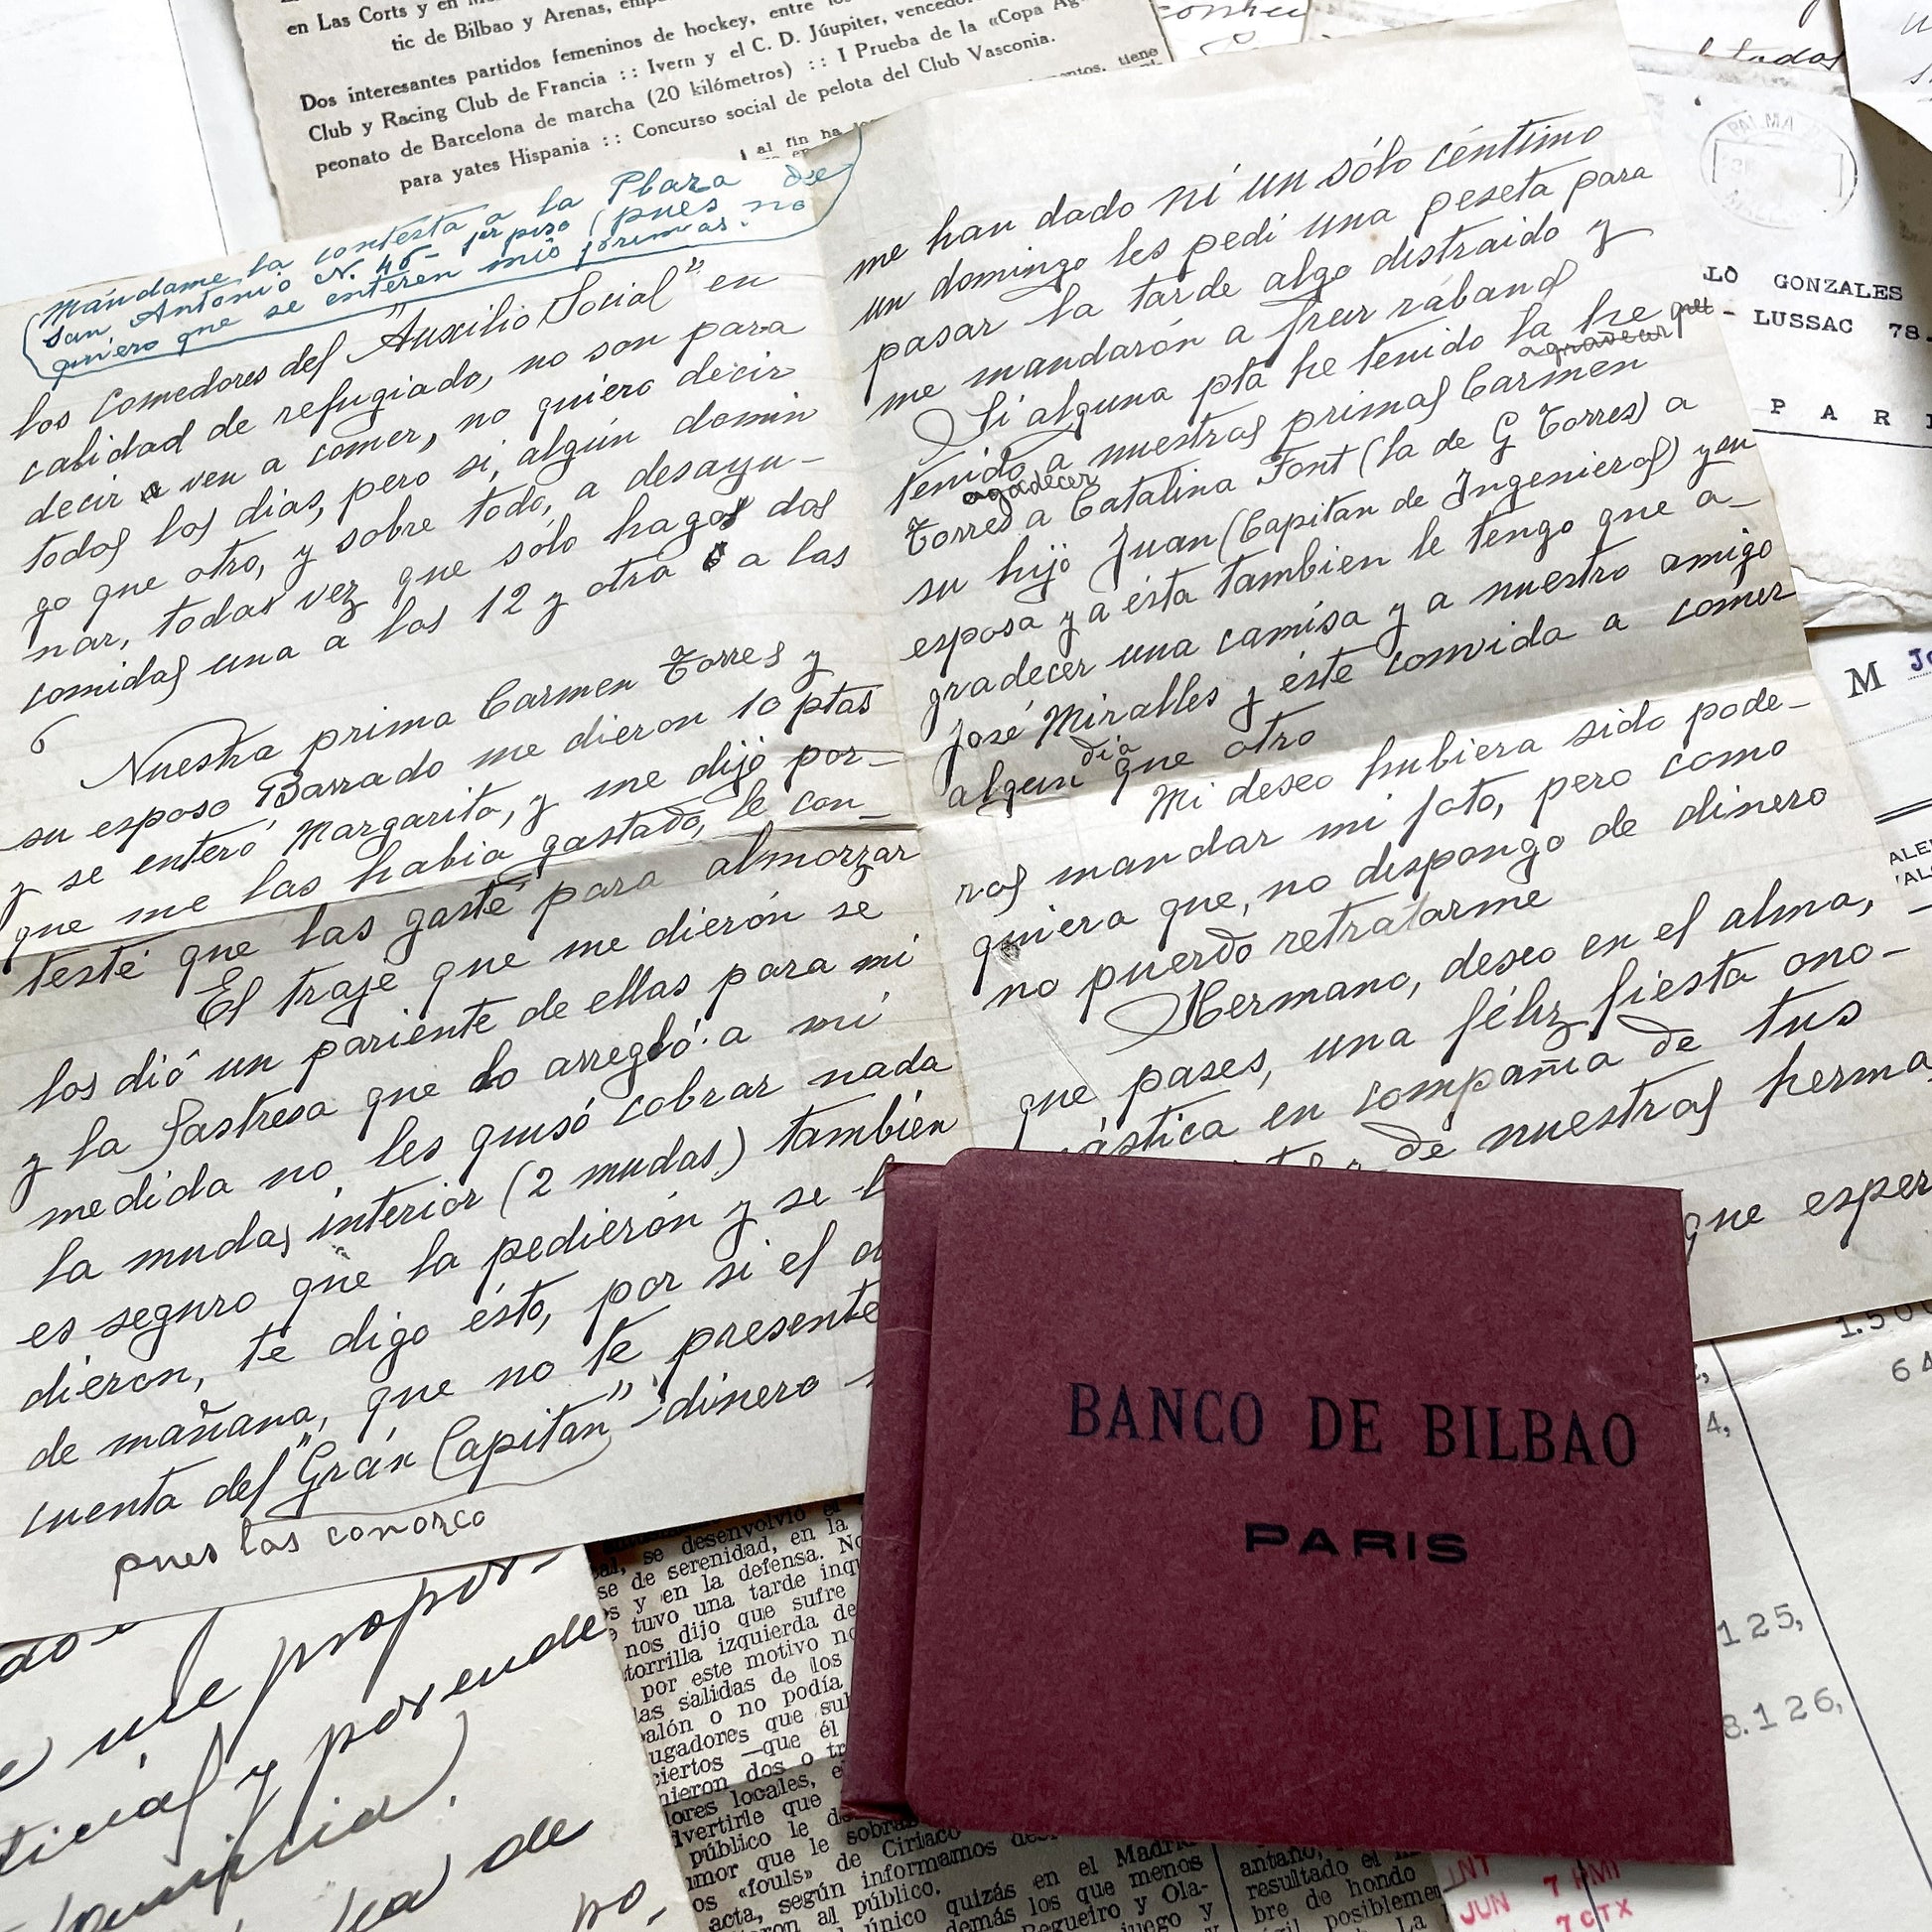 en Las Corts y en
tic de Bilbao y Arenas,
Dos interesantes partidos femeninos de hockey, entre
Club y Racing Club de Francia :: Ivern y el C. D. Júupiter,
peonato de Barcelona de marcha (20 kilómetros) :: I Prueba de la «Copa
para yates Hispania :: Concurso social de pelota del Club Vasconia.
tiene
al fin ha
(Mándame la contesta a la Plaza de
San Antonio N. 46- 1er piso (pues no
quiero que se enteren mis primas.
los comedores del "Auxilio Social" en
calidad de refugiado, no son para
decir ven a comer, no quiero decir
todos los dias, pero si, algún domin
go que otro, y sobre todo, a desayu-
nar, todas vez que sólo hagos dos
comidas una a las 12 y otra a las
6
Nuestra prima Carmen Torres y
su esposo Barrado me dieron 10 ptas
y se enteró Margarita, y me dijó por-
que me las habia gastado, le con-
testé que las gasté para almorzar
El traje que me dierón se
los dió un pariente de ellas para mi
y la sastresa que lo arregló a mi
medida no les quisó cobrar nada
la mudas interior (2 mudas) también
es seguro que la pedierón y se
dieron, te digo ésto, por si el
de mañana, que no te presente
cuenta del "Grán Capitan" dinero
pues las conozco
me han dado ni un sólo céntimo
un domingo les pedi una peseta para
pasar la tarde algo distraido y
me mandarón a freir rábanos
Si alguna pta he tenido la he
agradecer
tenido a nuestras primas Carmen
agadecer
Torres a Catalina Font (la de G Torres) a
su hijo Juan (Capitan de Ingenieros) y su
esposa y a ésta tambien le tengo que a-
gradecer una camisa y a nuestro amigo
José Miralles y éste convida a comer
algun dia que otro
Mi deseo hubiera sido pode-
ros mandar mi foto, pero como
quiera que, no dispongo de dinero
no puerdo retratarme
Hermano, deseo en el alma,
que pases, una féliz fiesta ono-
mástica en compañia de tus
de nuestras herma
que esper
PALMA
LO GONZALES
- LUSSAC 78.
PARI
M
1.500
64
4,
125,
8.126,
BANCO DE BILBAO
PARIS
se desenvolvió
se de serenidad, en la
y en la defensa. No
tuvo una tarde
nos dijo que sufre
torrilla izquierda de
por este motivo no
las salidas de los
balón o no podía
ugadores que
ciertos —que él
nieron dos o
ores locales,
dvertirle que
público le
mor que le
os «fouls» de Ciriaco
acta, según informamos
al público.
único quizás en el
demás los que menos
Regueiro y Ola-
juego y
antaño,
resultado el
bre de hondo
posiblemen
La
me propor-
y por ende
de
no,
INT
JUN 7 PM
7 CTX